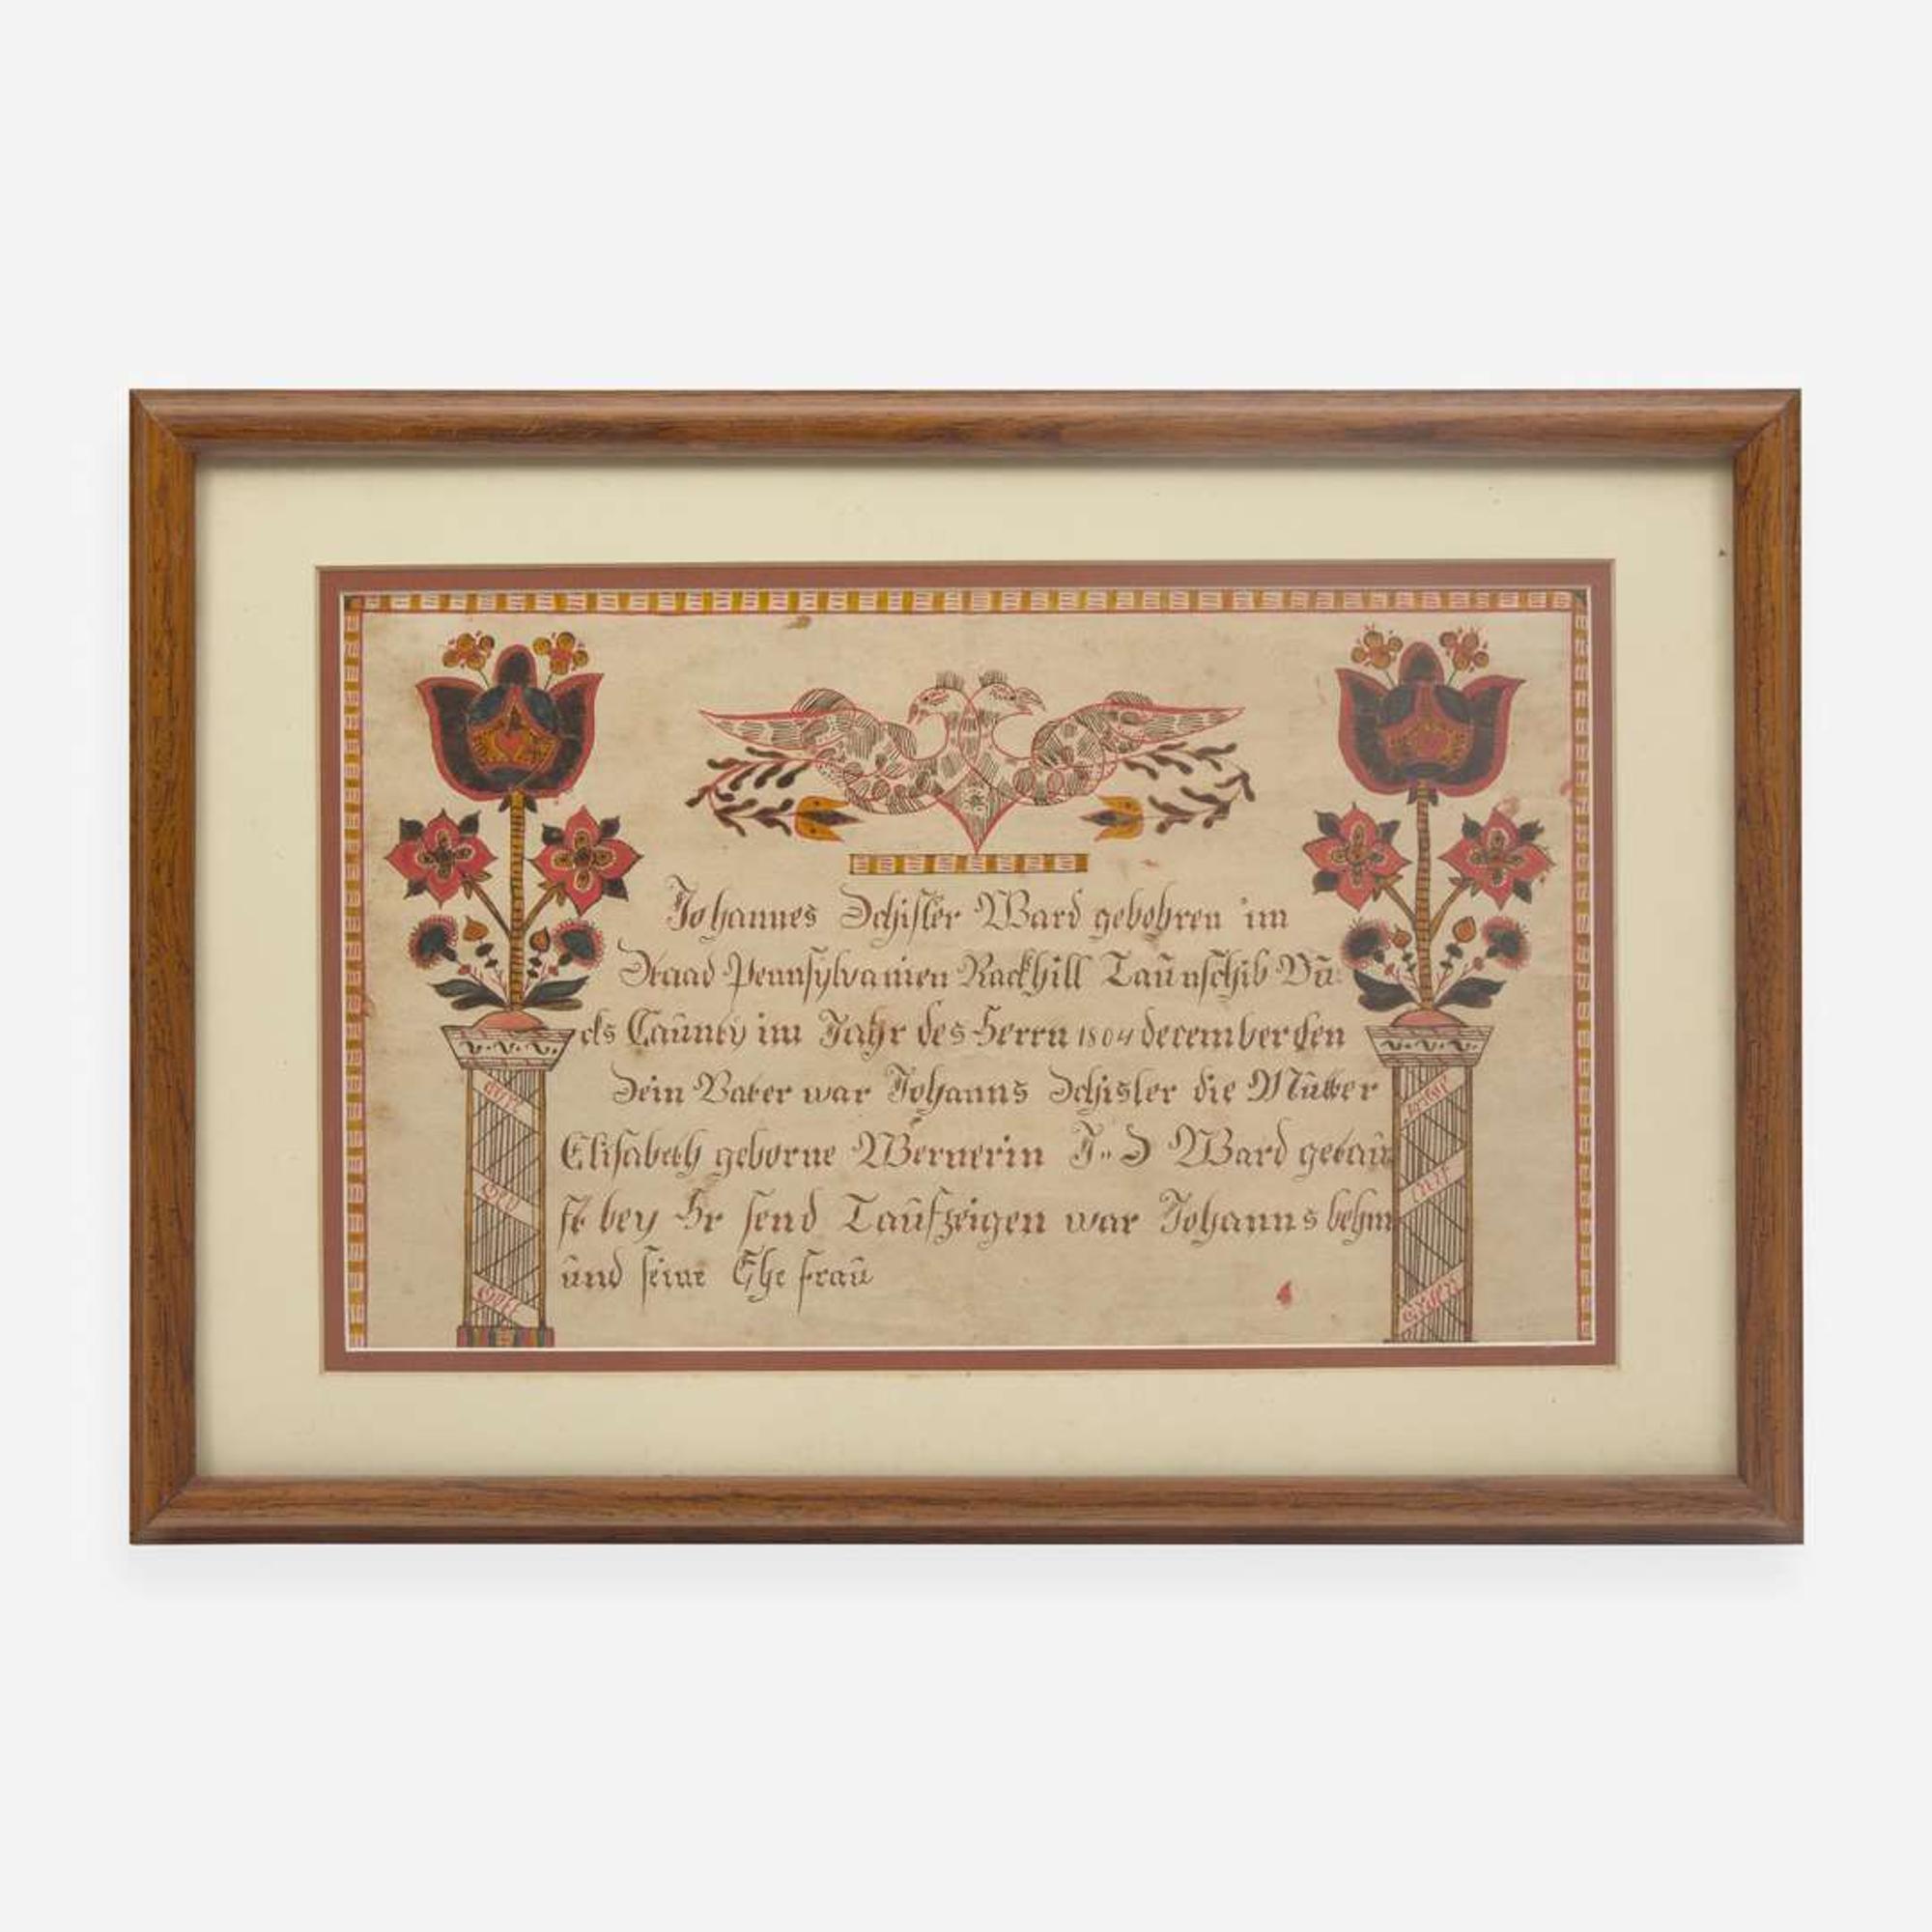 Johannes Schisler Ward gebohren im
Staad Pennsylvanien Rackhill Taūnschib Bū-
cks Caūnty im Jahr des Herrn 1804 december den
Sein Vater war Johanns Schisler die Mūtter
Elisabeth geborne Wernerin J.. S Ward getaū
ft bey Hr send Taūfzeigen war Johanns behm
ūnd seine Ehe fraū
Gott
Erden